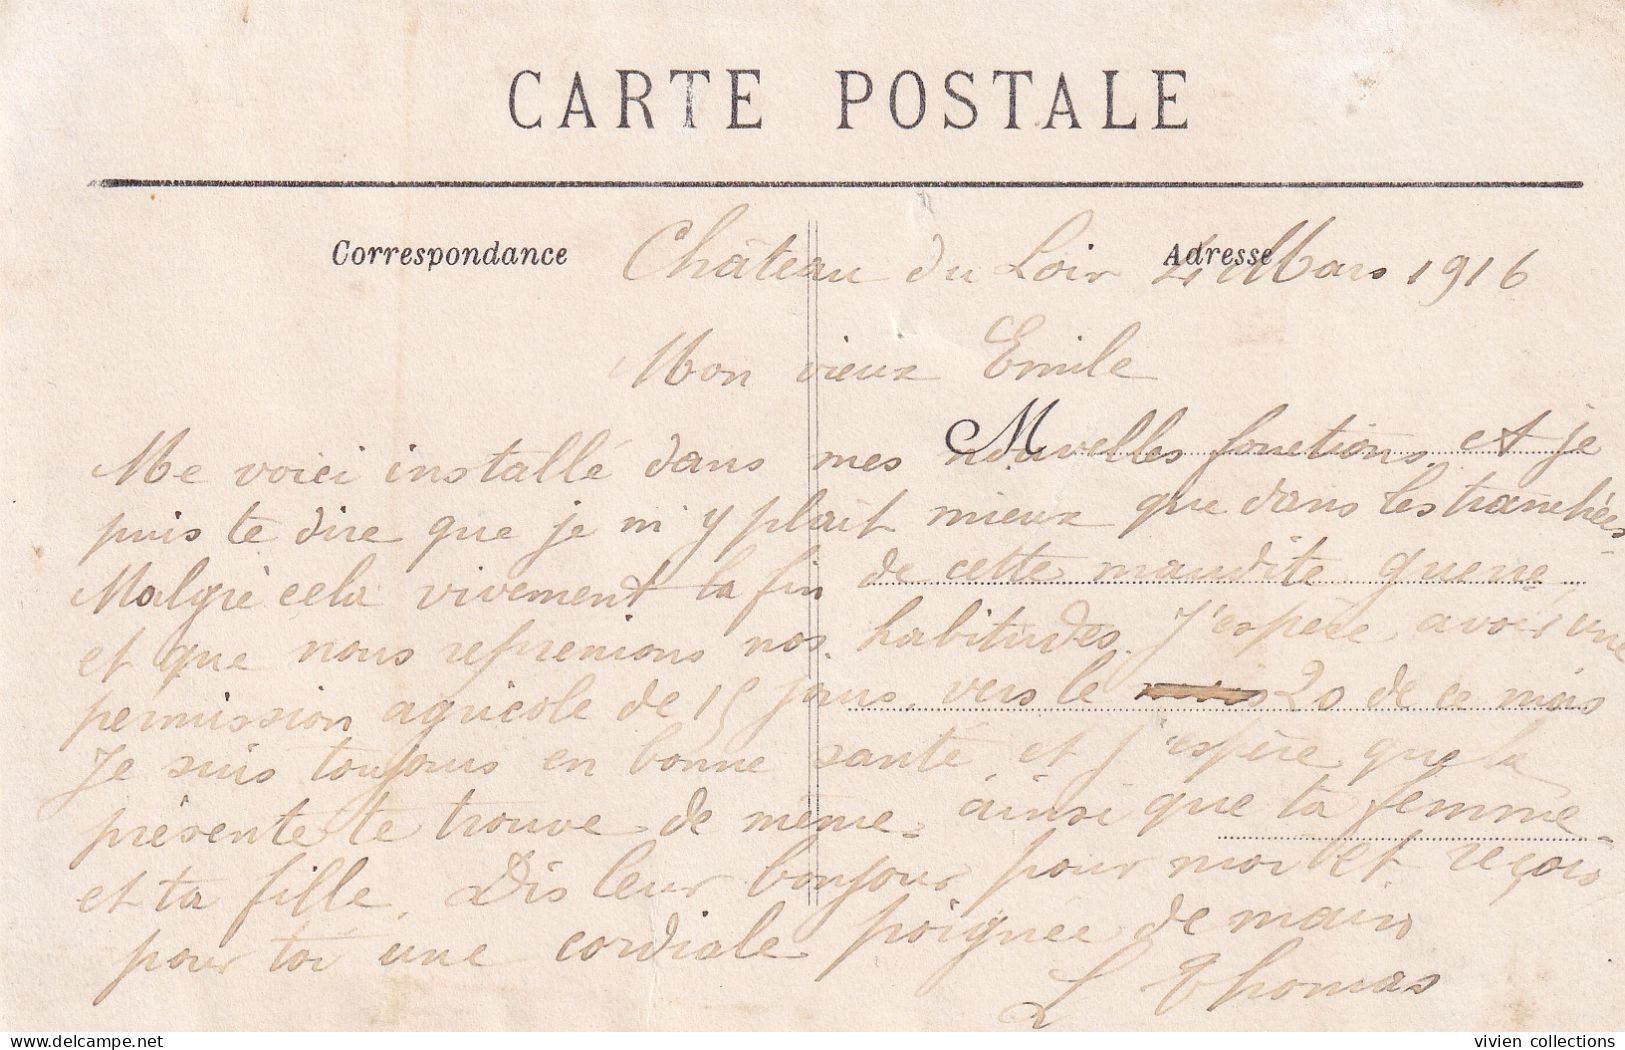 CARTE POSTALE
Correspondance
Adresse
Château du Loir 4 Mars 1916
Mon vieux Emile
M
Me voici installé dans mes nouvelles fonctions et je
puis te dire que je m'y plait mieux que dans les tranchées
Malgré cela vivement la fin de cette maudite guerre,
et que nous reprenions nos habitudes. J'espère avoir une
permission agricole de 15 jours, vers le 20 de ce mois
Je suis toujours en bonne santé et j'espère que la
présente te trouve de même, ainsi que ta femme
et ta fille. Dis leur bonjour pour moi et reçois
pour toi une cordiale poignée de main
L Thomas
vivien collections